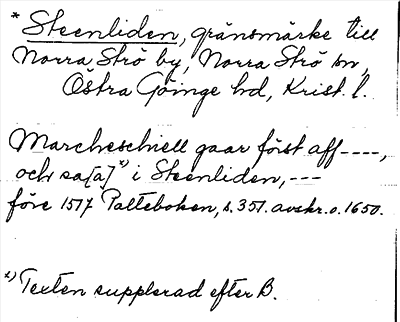 * Steenliden, gränsmärke till
Norra Strö by, Norra Strö sn,
Östra Göinge hd, Krist. l.
Marcheschiell gaar först aff ----,
och sa[a]x) i Steenliden, ---
före 1577 Palteboken, s. 351. avskr. o. 1650.
x) Texten supplerad efter B.